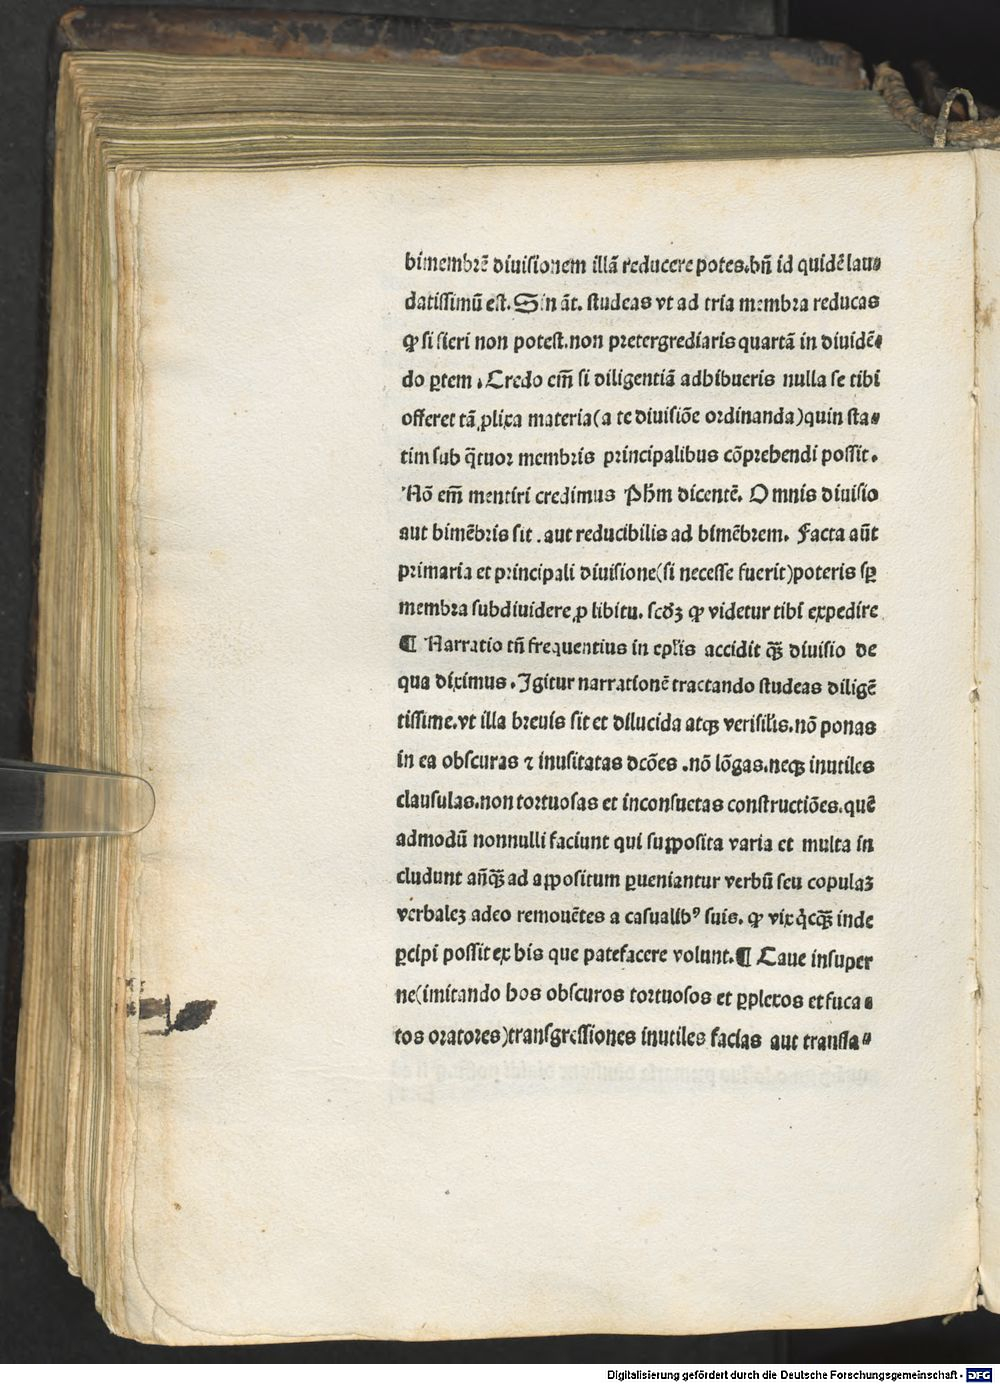 bimembrē diuisionem illā reducere potes.bn̄ id quidē lau⸗
datissimū est. Sin āt. studeas vt ad tria membra reducas
ꝙ si fieri non potest.non pretergrediaris quartā in diuidē⸗
do ꝑtem. Credo em̄ si diligentiā adhibueris nulla se tibi
offeret tā ꝓlixa materia(a te diuisiōe ordinanda)quin sta⸗
tim sub q̄tuor membris principalibus cōprehendi possit.
Nō em̄ mentiri credimus Ph̄m dicentē. Omnis diuisio
aut bimēbris sit . aut reducibilis ad bimēbrem. Facta aūt
primaria et principali diuisione(si necesse fuerit)poteris sꝑ
membra subdiuidere ꝓ libitu. scd̄ꝫ ꝙ videtur tibi expedire
¶ Narratio tn̄ frequentius in ep̄lis accidit q̄ꝫ diuisio de
qua diximus. Igitur narrationē tractando studeas diligē
tissime.vt illa breuis sit et dilucida atqꝫ verisil̄is.nō ponas
in ea obscuras ⁊ inusitatas dcōes .nō lōgas.neqꝫ inutiles
clausulas.non tortuosas et inconsuetas constructiōes.quē
admodū nonnulli faciunt qui supposita varia et multa in
cludunt an̄q̄ꝫ ad appositum ꝑueniantur verbū seu copulaꝫ
verbaleꝫ adeo remouētes a casualibꝰ suis. ꝙ vix q̇cq̄ꝫ inde
ꝑcipi possit ex his que patefacere volunt.¶ Caue insuper
ne(imitando hos obscuros tortuosos et ꝑplexos et fuca⸗
tos oratores)transgressiones inutiles facias aut transla⸗
Digitalisierung gefördert durch die Deutsche Forschungsgemeinschaft - DFG